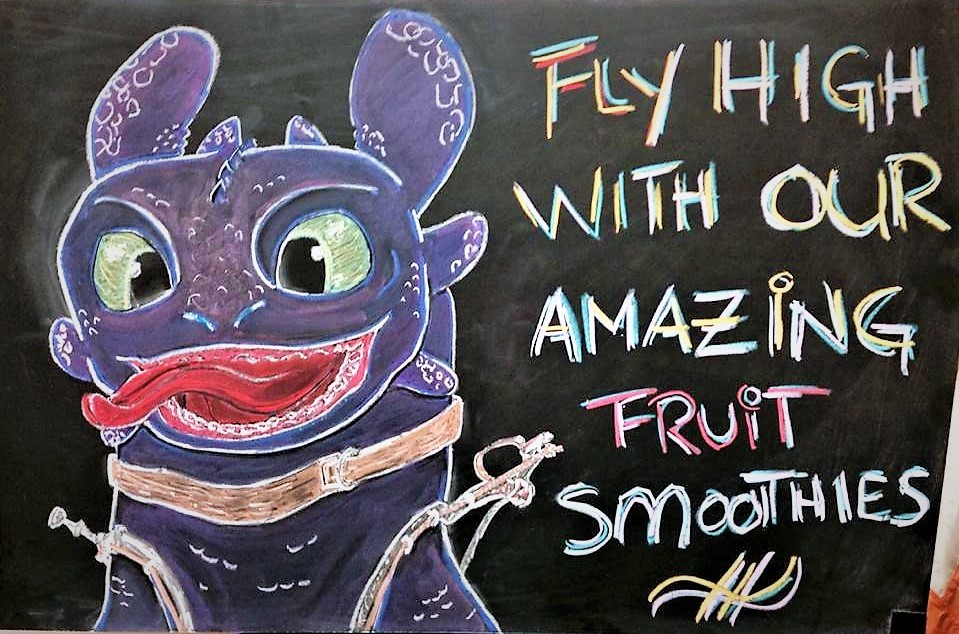 FLY HIGH
WITH OUR
AMAZiNG
FRUiT
SMOOTHIES